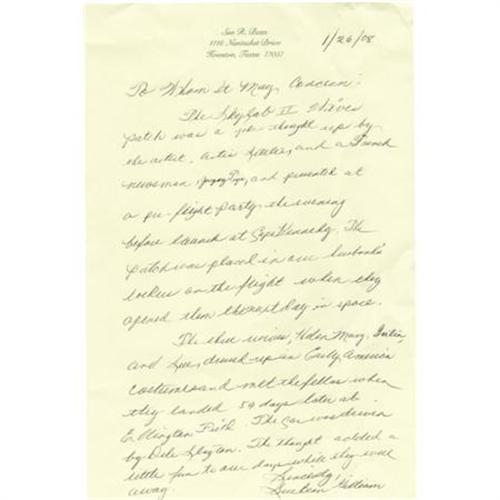 Sue R. Bean
Nantucket Drive
Houston, Texas 77057
1/26/08
To Whom It May Concern:
The Skylab II Wives
patch was a joke thought up by
the artist, and a French
newsman, and presented at
a pre-flight party the evening
before launch at Cape Kennedy. The
patch was placed in our husband's
lockers on the flight when they
opened them the next day in space.
The three wives, Helen Mary,
and Sue, dressed up in Early America
costumes and met the fellas when
they landed 59 days later at
Ellington Field. The car was driven
by Deke Slayton. The thought added a
little fun to our days while they were
away.
Sincerely,
Sue Bean